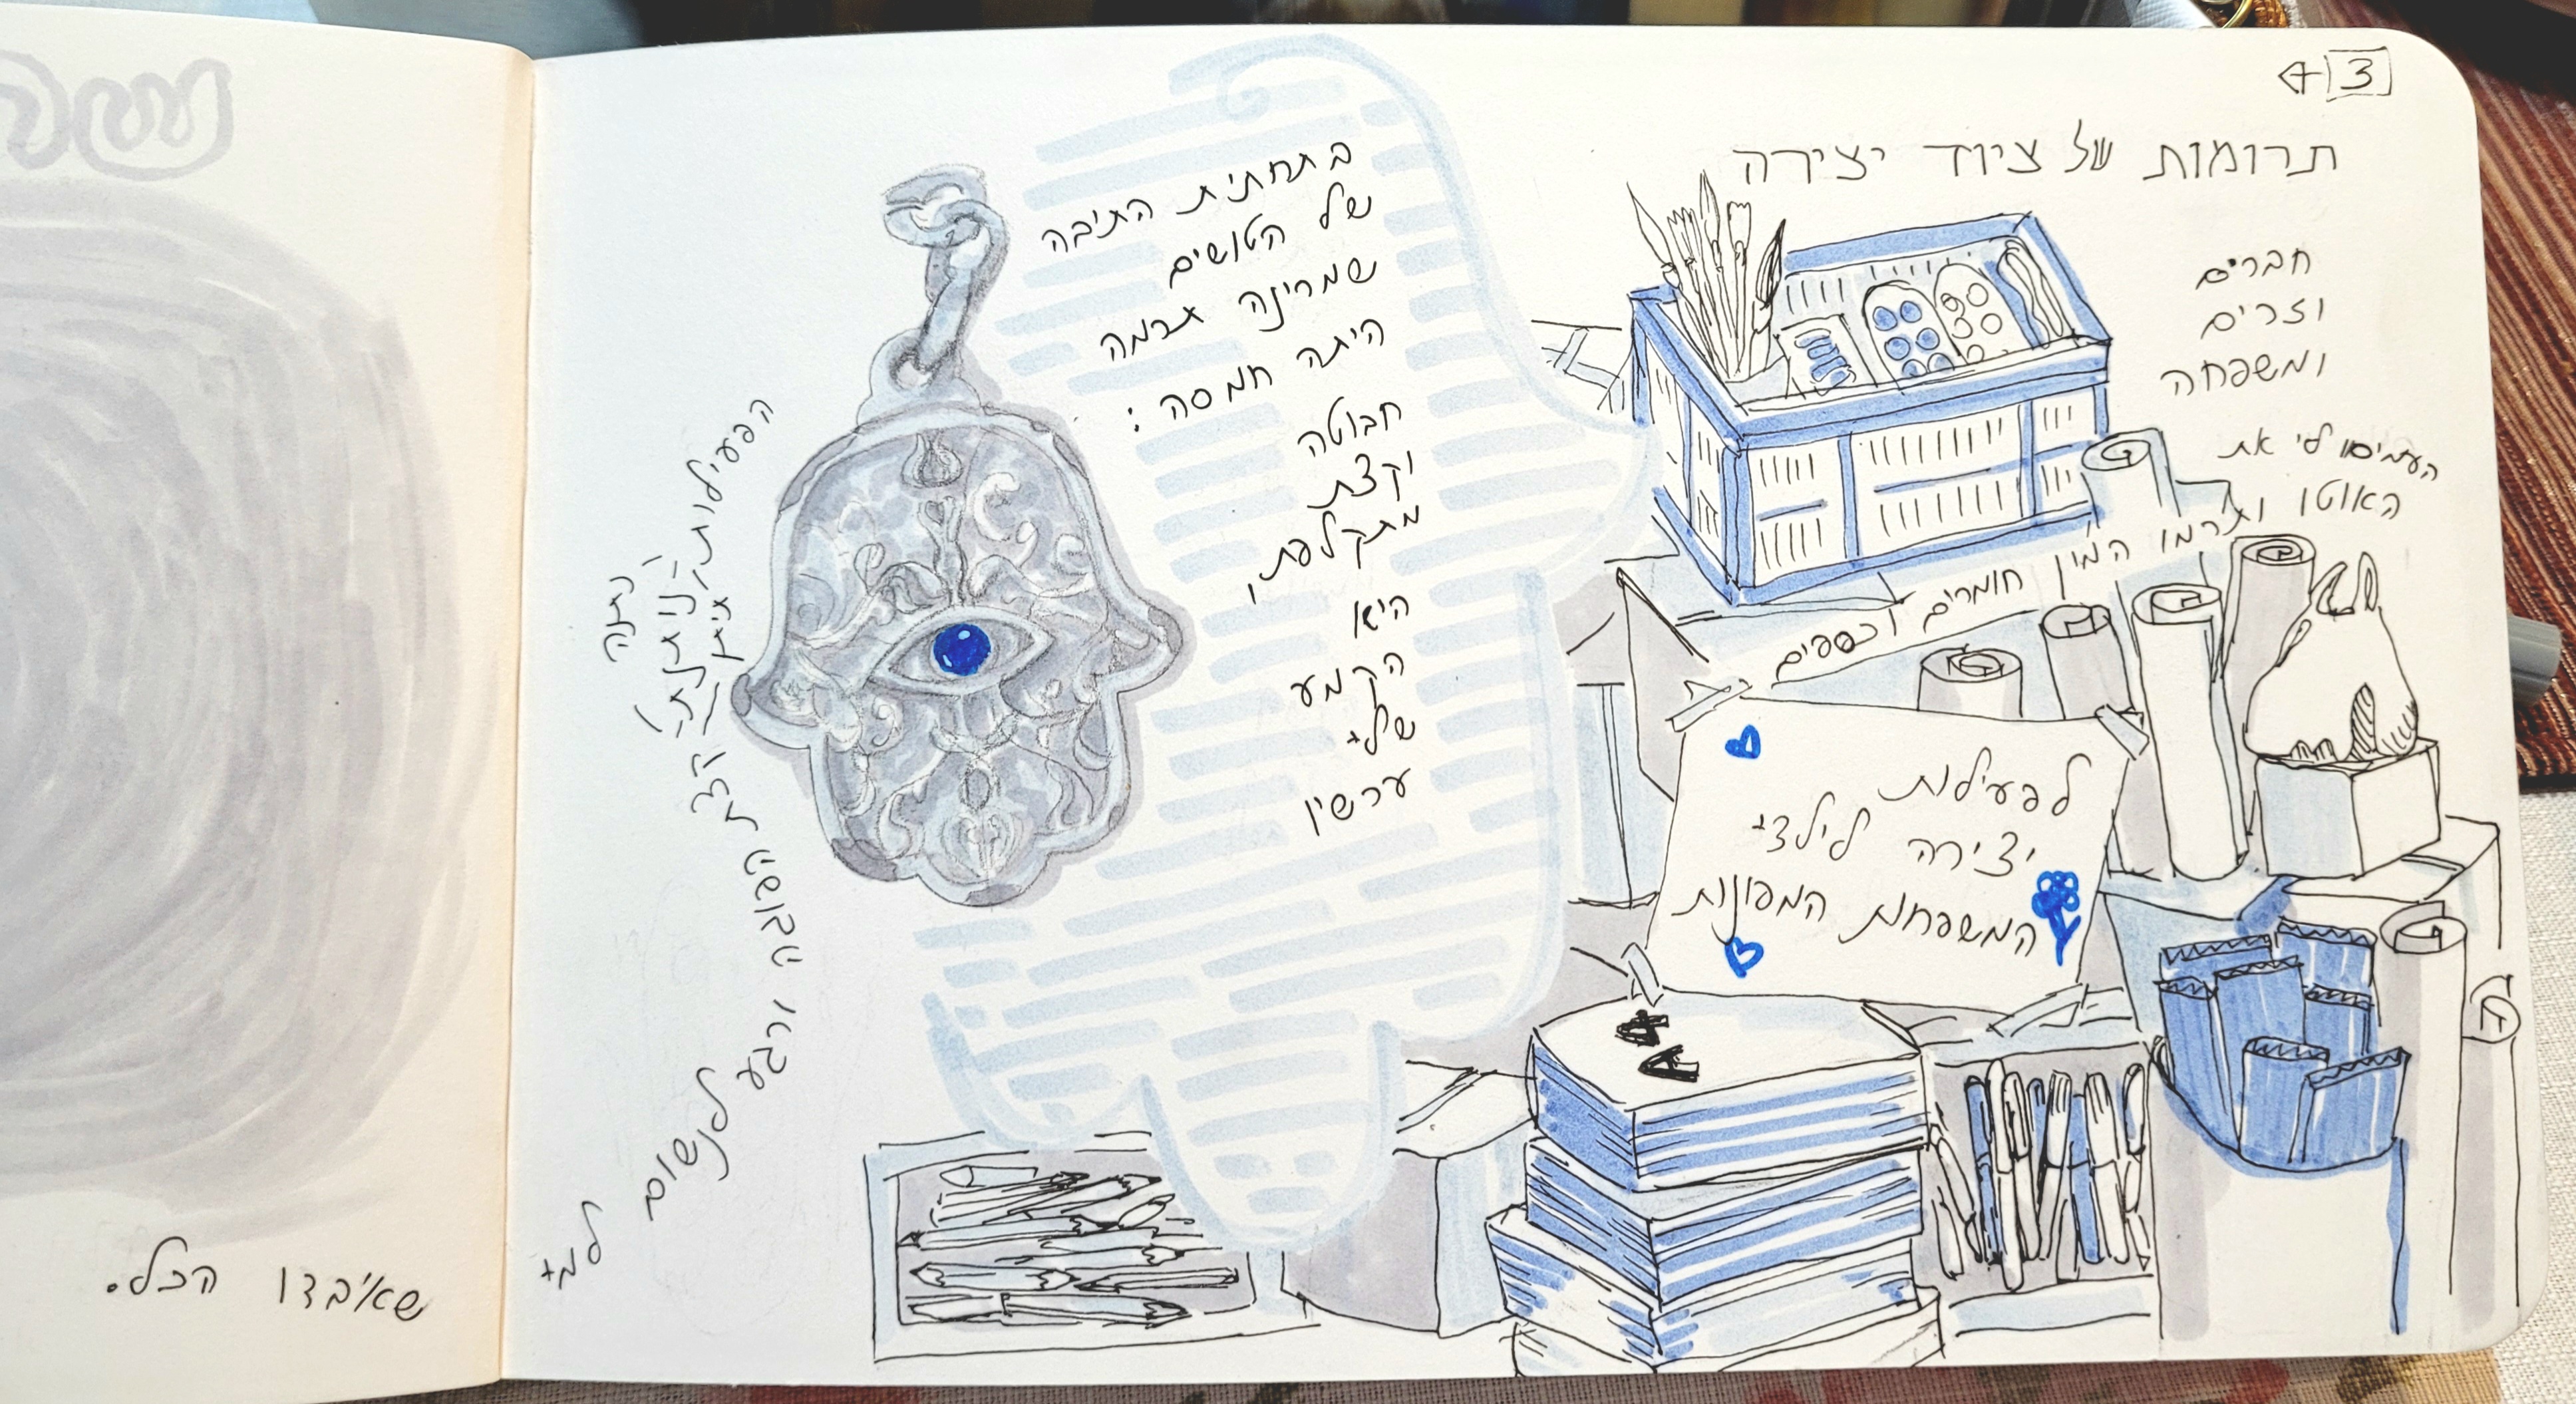 3
תרומות של ציוד יצירה
חברים
וזרים
ומשפחה
העמיסו לי את
האוטו ותרמו המון חומרים וכספים
לפעילות
יצירה לילדי
המשפחות המפונות
A4
בתחתית התיבה
של הטושים
שמרינה תרמה
היתה חמסה:
חבוטה
וקצת
מתקלפת,
היא
הקמע
שלי
עכשיו
הפעילות
נתנה
קצת תקווה ורגע לנשום למי
שאיבדו הכל.